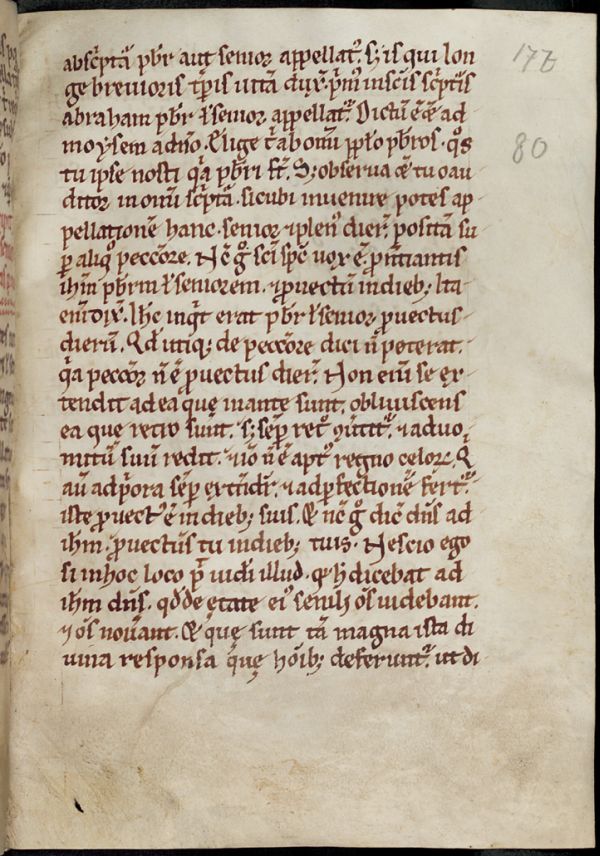 absc̄pta pb̄r aut senior appellat᷒. s; is qui lon
ge breuioris tp̄is uitā dux̄. p̄m̄ in sc̄is sc̄pturis
abraham pb̄r ł senior appellat᷒. Dictū ē ad
moysen a dn̄o. Elige t̄ pb̄ros. q̊s
tu ipse nosti qa pb̄ri st̄. S; obserua tu o au
ditor in omi sc̄pta. sicubi inuenire potes ap
pellationē hanc. senior ⁊ plen᷒ dier̄. positā su
p̄ aliq̊ peccōre. Nc̄ g̊ sc̄i sp̄c uox ē p̄nūtiantis
ih̄m pb̄rm ł seniorem. ⁊ puectū in dieb; Ita
enī dix̄. Ihc inq̄t erat pb̄r ł senior puectus
dierū. Qd̄ utiq; de peccōre dici n̄ poterat.
qa peccōr n̄ ē puectus dier̄. Non enī se ex
tendit ad ea quę in ante sunt. obliuiscens
ea que retro sunt. s; sēp ret᷒ ⁊ ad uo
mitū suū redit. ⁊ iō n̄ ē apt᷒ regno celoꝝ. Q
aū ad p̄ora sēp extēdit᷒. ⁊ ad pfectionē fert᷒.
iste puect᷒ ē in dieb; suis. Et nc̄ g̊ dic̄ dn̄s ad
ih̄m. puectus tu in dieb; tuis. Nescio ego
si in hoc loco p̄ uidi illud. qđ h dicebat ad
ih̄m dn̄s. qđ de ętate ei᷒ senili om̄s uidebant.
⁊ om̄s nouant. Et quę sunt tā magna ista di
uina responsa quę hōib; deferunt᷒. ut di
177
80